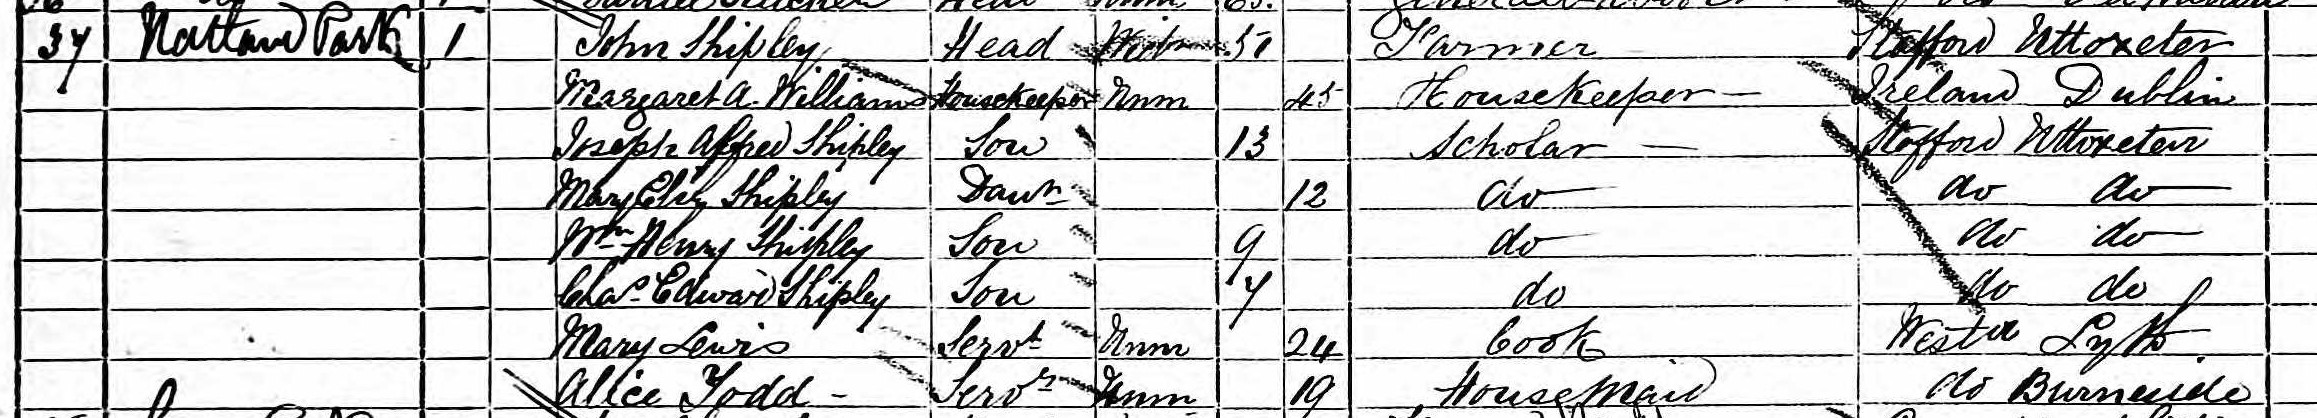 37 Natland Park 1 John Shipley Head Widr 51 Farmer Stafford Uttoxeter
Margaret A. Williams Housekeeper Unm 45 Housekeeper — Ireland Dublin
Joseph Alfred Shipley Son 13 Scholar — Stafford Uttoxeter
Mary Eliz Shipley Daur 12 do do do
Wm Henry Shipley Son 9 do do do
Chas Edward Shipley Son 7 do do do
Mary Lewis Servt Unm 24 Cook Westd Lyth
Alice Todd - Servt Unm 19 House Maid do Burneside